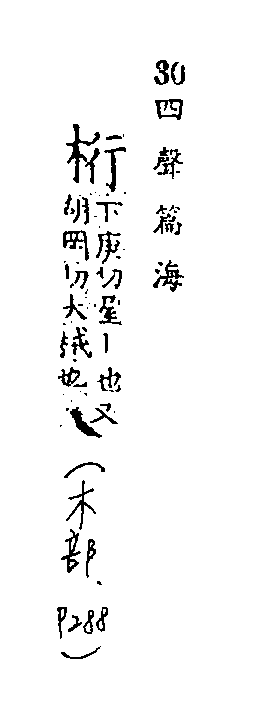 30 四聲篇海
桁 下庚切屋丨也又
胡岡切大械也
（木部、P288）